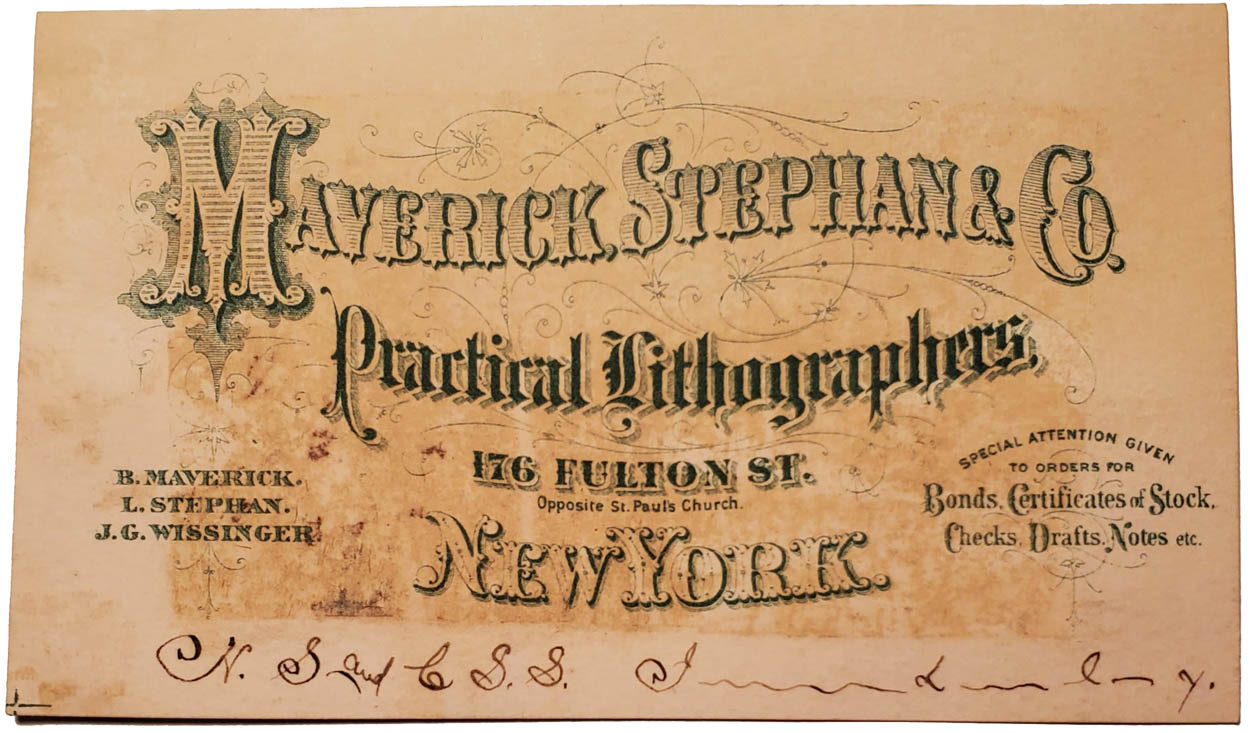 MAVERICK, STEPHAN & CO.
Practical Lithographers,
176 FULTON ST.
Opposite St. Paul's Church.
NEW YORK.
B. MAVERICK.
L. STEPHAN.
J. G. WISSINGER
SPECIAL ATTENTION GIVEN
TO ORDERS FOR
Bonds, Certificates of Stock,
Checks, Drafts, Notes etc.
N. S and C S. S.